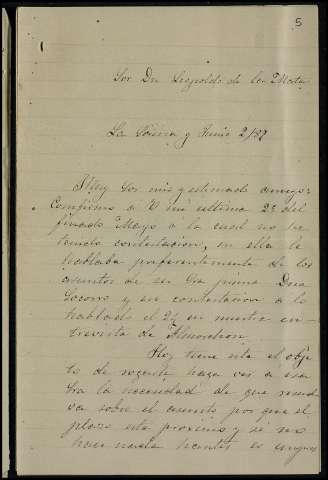 5
Sor Dn Leopoldo de la Mata
La y Junio 2/82
Muy Sor mio y estimado amigo:
Confirmo á V mi ultima 23 del
finado Mayo á la cual no he
tenido contestacion, en ella le
hablaba preferentemente de los
asuntos de su Sra prima Dña
Socorro y en contestacion a lo
hablado el 24 en nuestra en-
trevista de Almorchon.
Hoy tiene esta el obje
to de rogarle haga ver á esa
Sra la necesidad de que resuel
va sobre el asunto por que el
plazo esta proximo y si no
hace nada hantes es